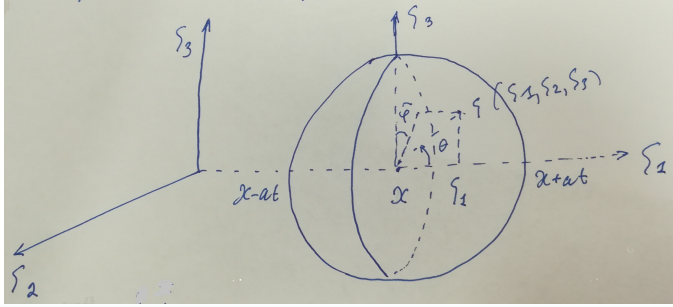 ξ3
ξ3
φ̃
ξ (ξ1, ξ2, ξ3)
θ
x-at
x
ξ1
x+at
ξ1
ξ2